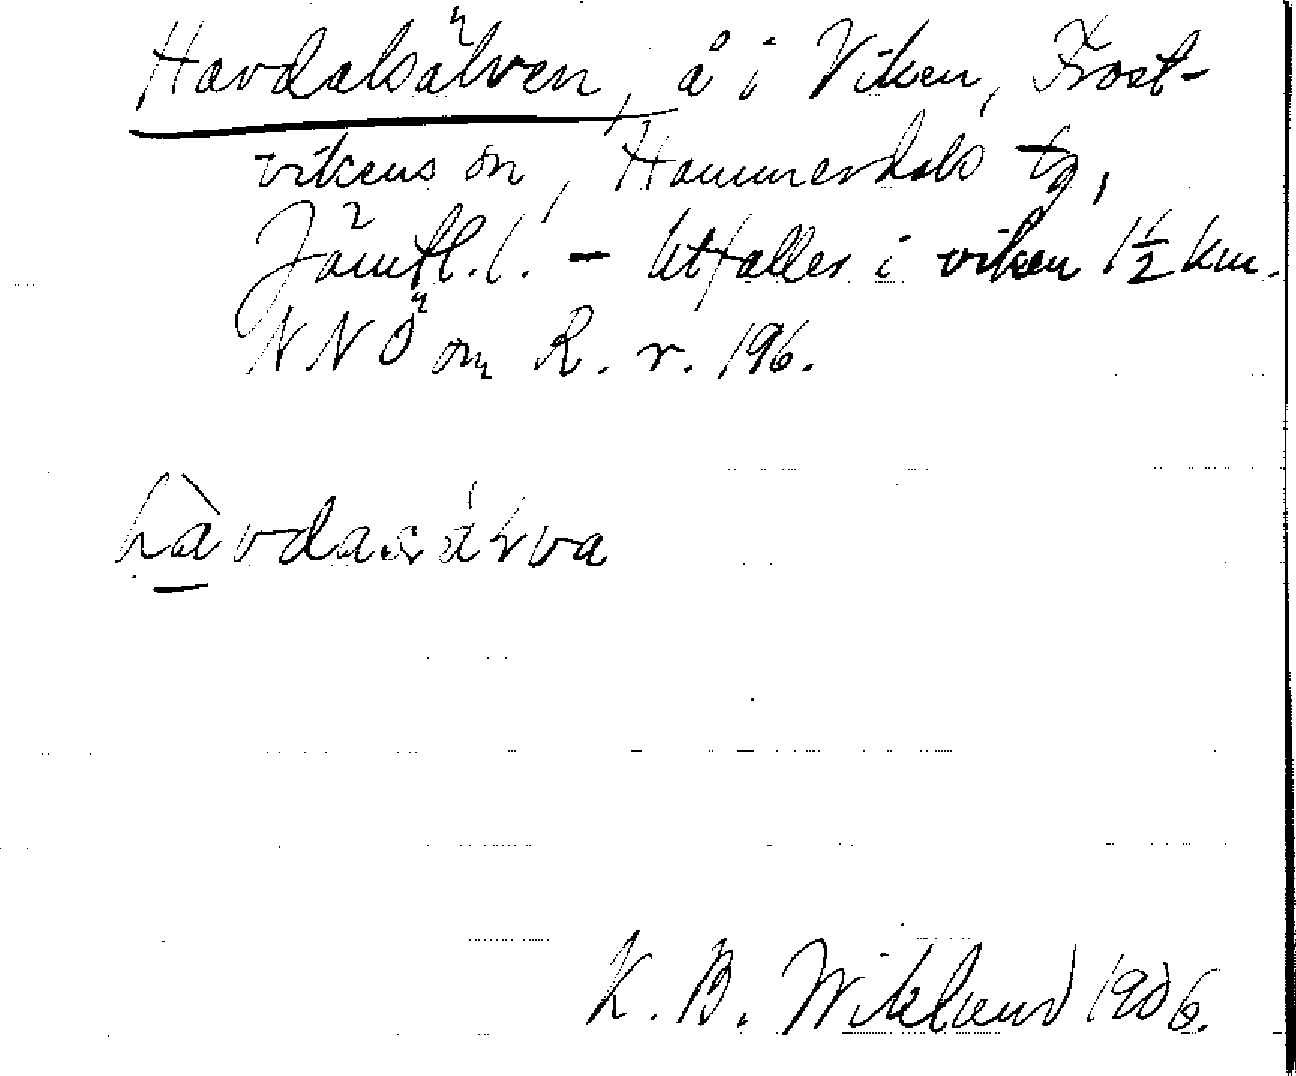 Havdalsälven, å i Viken, Frost-
vikens sn, Hammerdals tg,
Jämtl. l. – Utfaller i viken 1½ km.
NNÖ om R. r. 196.
hàvdasárva
K. B. Wiklund 1906.